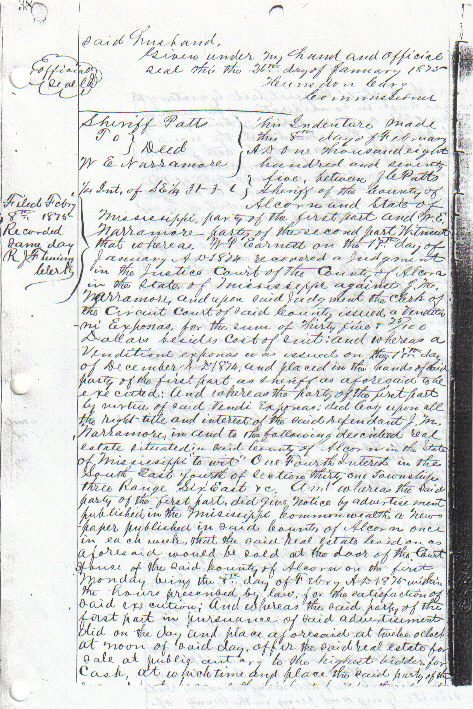 said husband.
Given under my hand and official
seal this the 30th day of January 1875
Commissioner
Official
Seal
Sheriff Patts
To } Deed
W E Narramore
1/4 Int. of SE 1/4 31-3-6
This Indenture made
this 8th day of February
A D One thousand eight
hundred and seventy
five, between J E Patts
Sheriff of the County of
Alcorn and State of
Filed Febry
8th 1875
Recorded
same day
Clerk
Mississippi, party of the first part and W E.
Narramore party of the second part Witness
that whereas W F Earnest on the 17th day of
January A D 1874 recovered a Judgment
in the Justice Court of the County of Alcorn
in the State of Mississippi against J. M.
Narramore, and upon said Judgment the Clerk of
the Circuit Court of said County issued a Venditio
ni Exponas, for the sum of Thirty five &
Dollars besides cost of suit: and whereas a
Venditioni exponas was issued on the 18th day
of December A D 1874, and placed in the hands of said
party of the first part as sheriff as aforesaid to be
executed: And whereas the party of the first part
by virtue of said Vendi Exponas; did levy upon all
the right title and interest of the said defendant J. M.
Narramore, in and to the following described real
estate situated in said County of Alcorn in the State
of Mississippi to wit: One Fourth Interest in the
South East Fourth of Section thirty one Township
three Range Six East &c. And whereas the said
party of the first part, did give notice by advertisement
published in the Mississippi Commonwealth a News
paper published in said County of Alcorn once
in each week, that the said Real Estate levied on as
aforesaid would be sold at the door of the Court
House of the said County of Alcorn on the first
Monday being the 8th day of Febry A D 1875 within
the hours prescribed by law, for the satisfaction of
said execution; And whereas the said party of the
first part in pursuance of said advertisement
did on the day and place aforesaid at twelve oclock
at noon of said day, offer the said real estate for
sale at public outcry to the highest bidder for
Cash, at which time and place the said party of the